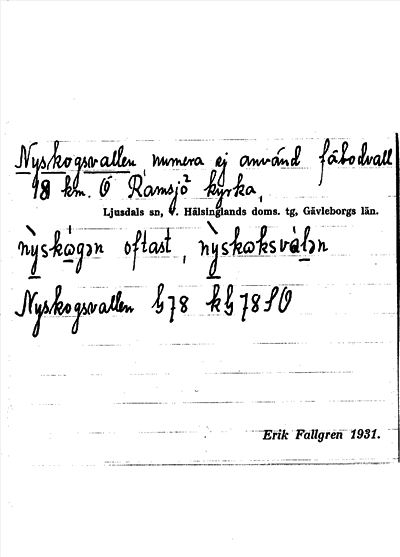 Nyskogsvallen numera ej använd fäbodvall
18 km. Ö Ramsjö kyrka,
Ljusdals sn, V. Hälsinglands doms. tg, Gävleborgs län.
nỳskɷ̀gən oftast, nỳskɷksvàlən
Nyskogsvallen G78 kG78SO
Erik Fallgren 1931.